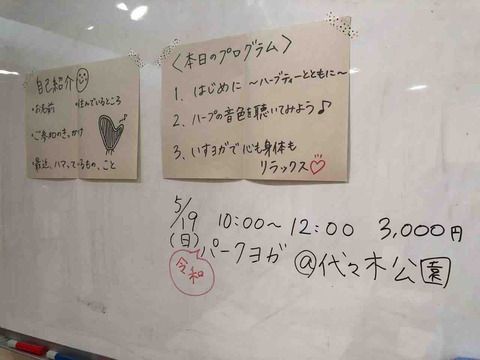 自己紹介
・お名前 ・住んでいるところ
・ご参加のきっかけ
・最近、ハマっているもの、こと
〈本日のプログラム〉
1. はじめに 〜ハーブティーとともに〜
2. ハープの音色を聴いてみよう♪
3. いすヨガで心も身体も
リラックス♡
5/19 10:00〜12:00 3,000円
(日) パークヨガ @代々木公園
令和